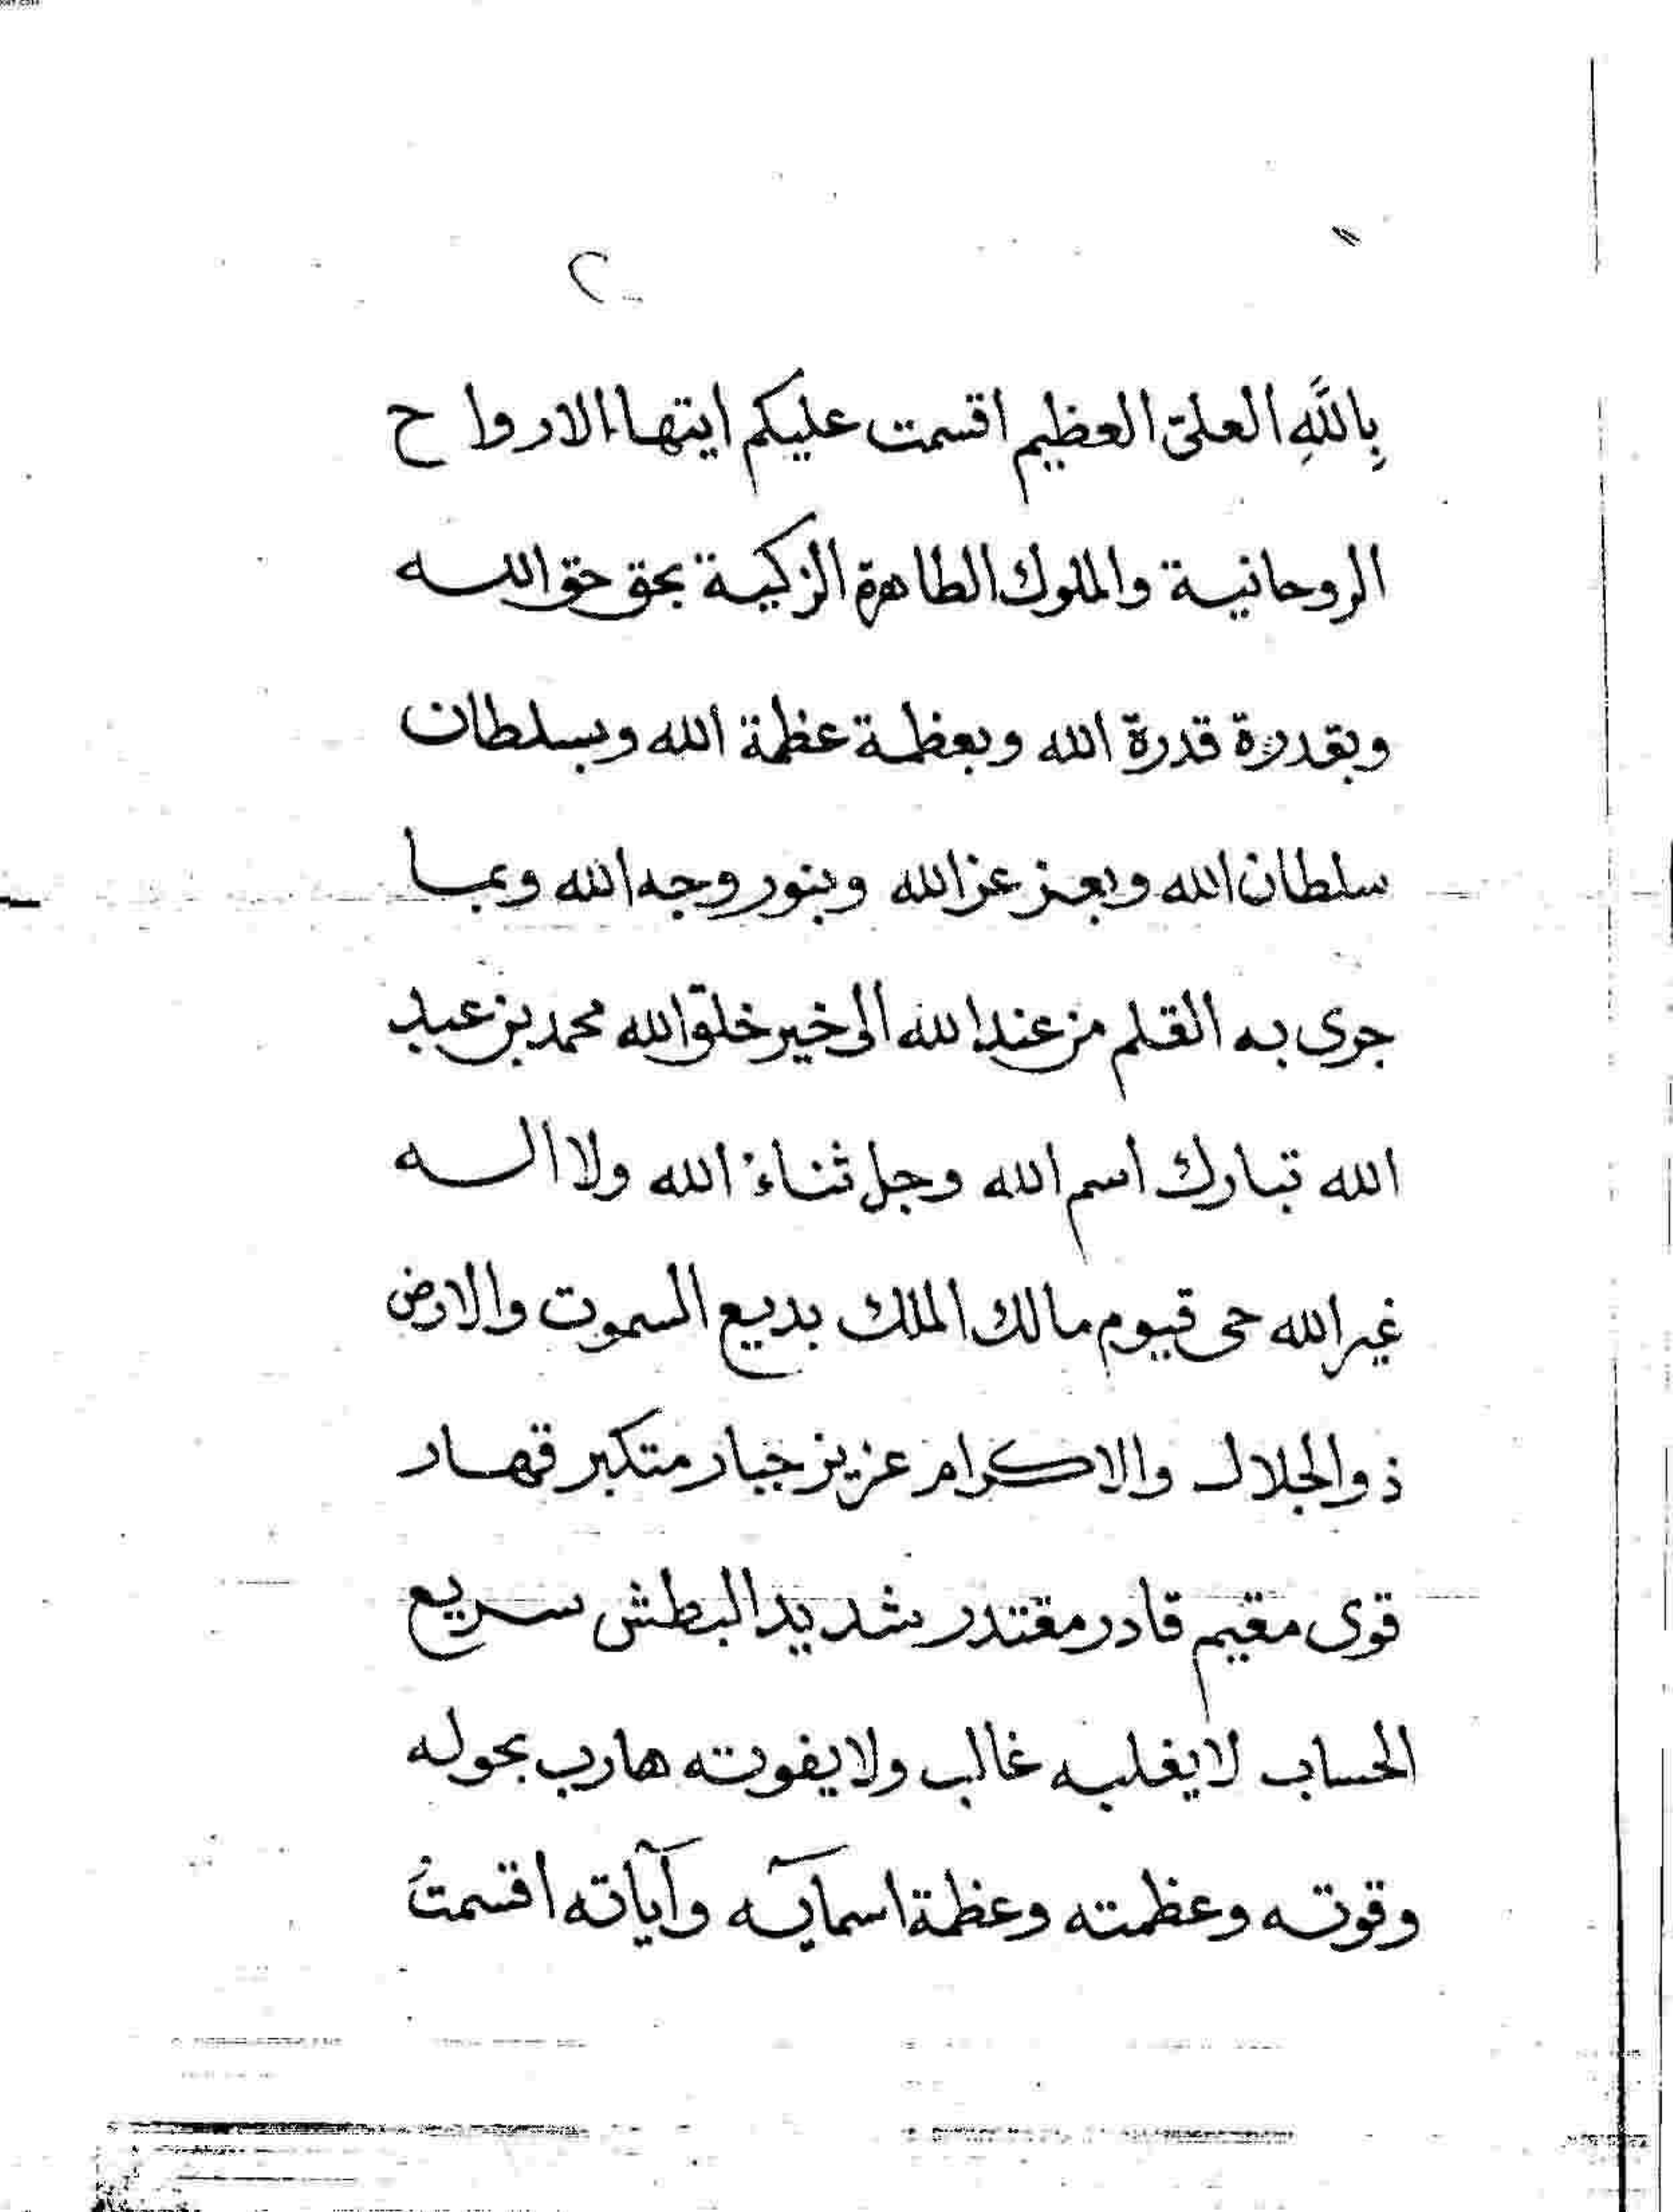 ٢
بِاللَّهِ العلىّ العظيم اقسمت عليكم ايتها الارواح
الروحانية والملوك الطاهرة الزكية بحق حق الله
وبقدرة قدرة الله وبعظمة عظمة الله وبسلطان
سلطان الله وبعز عز الله وبنور وجه الله وبما
جرى به القلم من عند الله الى خير خلق الله محمد بن عبد
الله تبارك اسم الله وجل ثناءُ الله ولا اله
غير الله حى قيوم مالك الملك بديع السموت والارض
ذو الجلال والاكرام عزيز جبار متكبر قهار
قوى مقيم قادر مقتدر شديد البطش سريع
الحساب لا يغلبه غالب ولا يفوته هارب بحوله
وقوته وعظمته وعظمة اسمآيه وآياته اقسمتُ